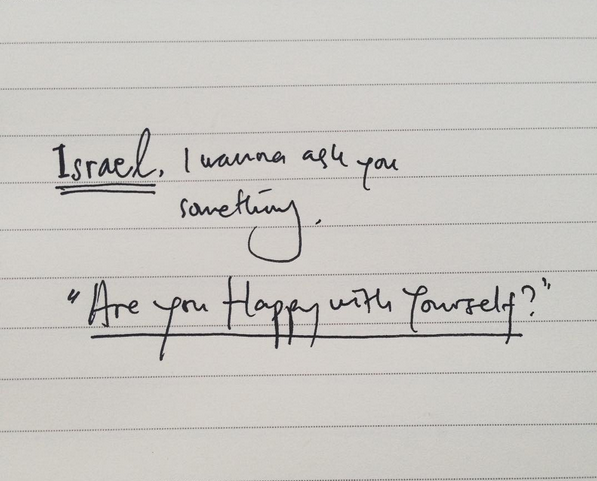 Israel, I wanna ask you
something.
"Are you Happy with Yourself?"